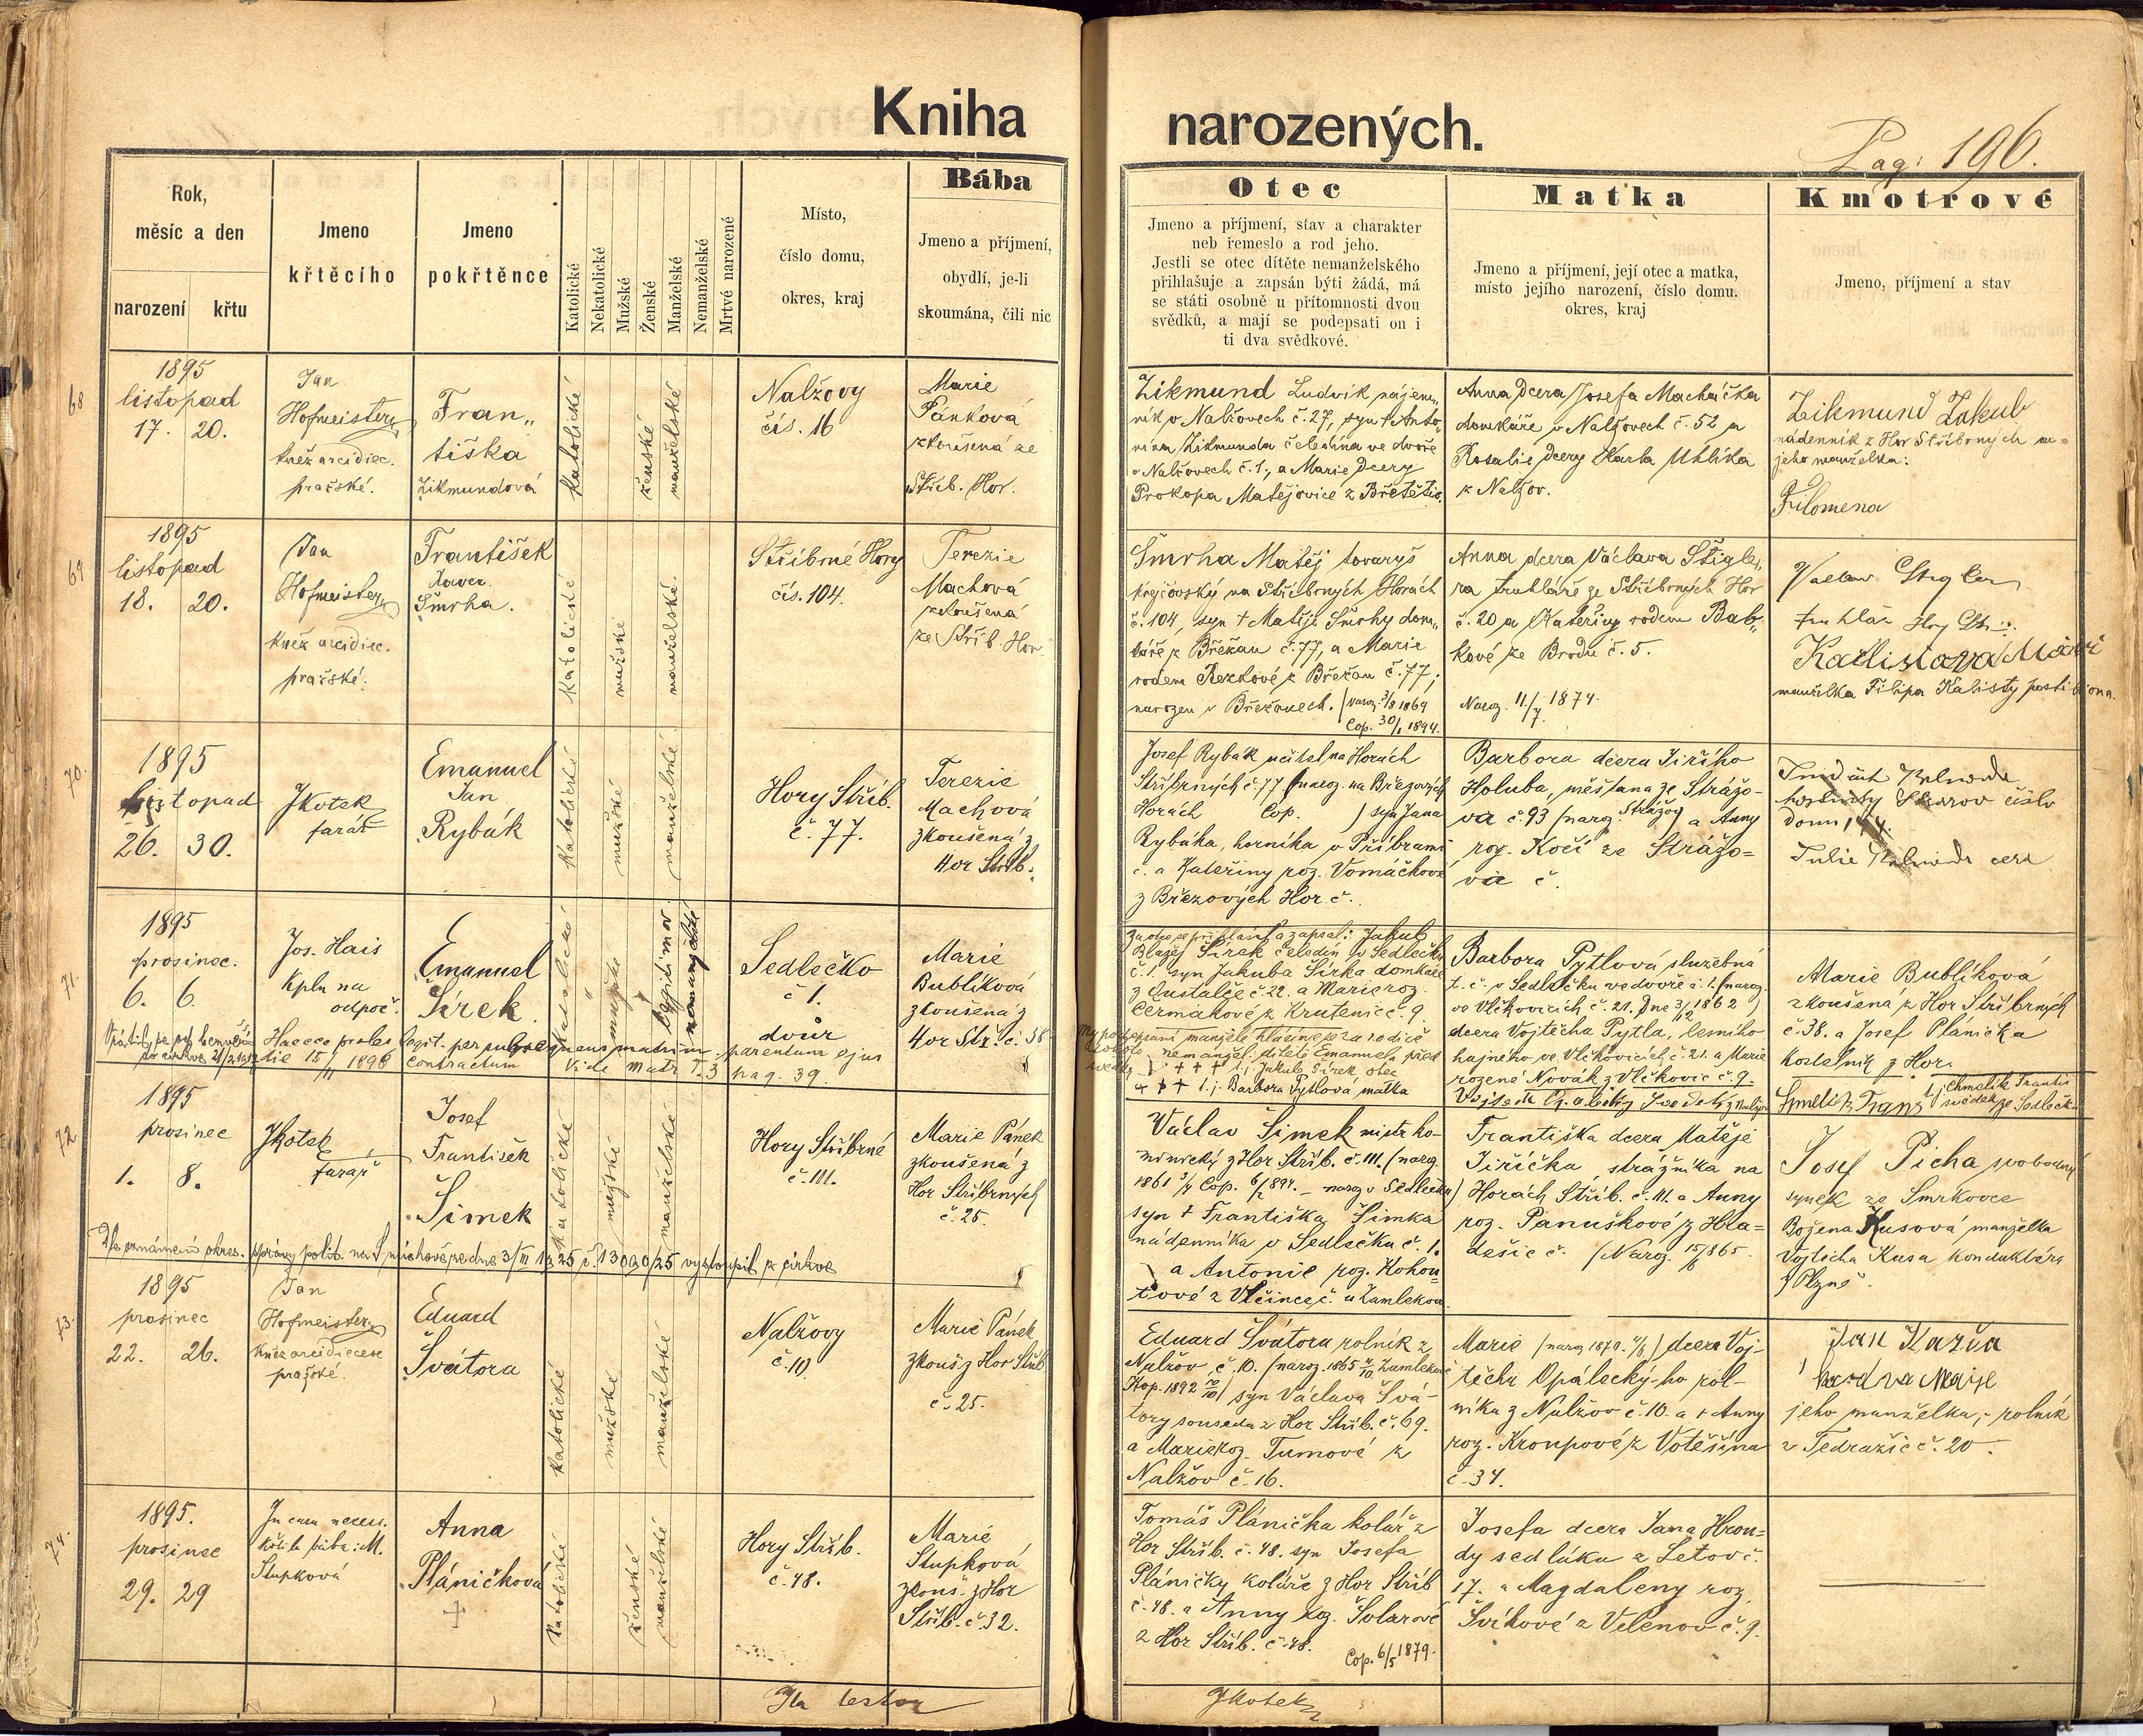 Kniha narozených.
Pag: 196.
Rok,
měsíc a den
narození křtu
Jmeno
křtěcího
Jmeno
pokřtěnce
Katolické
Nekatolické
Mužské
Ženské
Manželské
Nemanželské
Mrtvé narozené
Místo,
číslo domu,
okres, kraj
Bába
Jmeno a příjmení,
obydlí, je-li
skoumána, čili nic
Otec
Jmeno a příjmení, stav a charakter
neb řemeslo a rod jeho.
Jestli se otec dítěte nemanželského
přihlašuje a zapsán býti žádá, má
se státi osobně u přítomnosti dvou
svědků, a mají se podepsati on i
ti dva svědkové.
Matka
Jmeno a příjmení, její otec a matka,
místo jejího narození, číslo domu,
okres, kraj
Kmotrové
Jmeno, příjmení a stav
68
1895
listopad
17. 20.
Jan
Hofmeister
kněz arcidiec.
pražské.
Fran„
tiška
Zikmundová
katolické
ženské
manželské
Nalžovy
čís. 16
Marie
Pánková
zkoušená ze
Stříb. Hor.
Zikmund Ludvík nájem„
ník v Nalžovech č. 27, syn † Anto„
nína Zikmunda čeledína ve dvoře
v Nalžovech č. 1., a Marie dcery
Prokopa Matějovice z Břetětic.
Anna dcera Josefa Macháčka
domkáře v Nalžovech č. 52 a
Rosalie dcery Karla Uhlíka
z Nalžov.
Zikmund Jakub
nádenník z Hor Stříbrných a
jeho manželka:
Filomena
69
1895
listopad
18. 20.
Jan
Hofmeister
kněz arcidiec.
pražské.
František
Xaver.
Šmrha.
katolické
mužské
manželské.
Stříbrné Hory
čís. 104.
Terezie
Machová
zkoušená
ze Stříb. Hor.
Šmrha Matěj tovaryš
krejčovský na Stříbrných Horách
č. 104, syn † Matěje Šmrhy dom„
káře z Břežan č. 77, a Marie
rodem Rezkové z Břežan č. 77;
narozen v Břežanech. (naroz. 3/8 1869
Cop. 30/1 1894.
Anna dcera Václava Štigle„
ra truhláře ze Stříbrných Hor
č. 20 a Kateřiny rodem Bab„
kové ze Brodu č. 5.
Naroz. 11/7 1874.
Vaclav Stigler
truhlář
manželka Filipa Kalisty
70.
1895
listopad
26. 30.
JKotek
farář
Emanuel
Jan
Rybák
katolické
mužské
manželské
Hory Stříb.
č. 77.
Terezie
Machová
zkoušená z
Hor Stříb.
Josef Rybák učitel na Horách
Stříbrných č. 77 (naroz. na Březových
Horách Cop. ) syn Jana
Rybáka, horníka v Příbrami
č. a Kateřiny roz. Vomáčkové
z Březových Hor č.
Barbora dcera Jiřího
Holuba, měšťana ze Strážo-
va č. 93 (naroz. Strážov) a Anny
roz. Kočí ze Strážo=
va č.
71.
1895
prosinec.
6. 6.
Jos. Hais
kpln na
odpoč.
Emanuel
Šírek
katolické
mužské
legitimov.
nemanželské
Sedlečko
č 1.
dvůr
Marie
Bublíková
zkoušená z
Hor Stř. č. 38
Haecce proles legit. per subsequens matrim. parentum ejus
die 15/11 1898 contractum Vide Matr. T. 3 pag. 39.
Za otce se přihlásil a zapsal: Jakub
Blažej Šírek čeledín v Sedlečku
č. 1 syn Jakuba Šírka domkáře
č. 22. a Marie roz.
Čermákové z Krutěnic č. 9.
My podepsaní manželé hlásíme se za rodiče
nemanžel. dítěte Emanuela před
svědky
† † † 1. j. Jakub Šírek otec
† † † 1. j. Barbora Pytlová matka
Barbora Pytlová služebná
t. č. v Sedlečku ve dvoře č. 1. (naroz.
ve Vlčkovicích č. 21. dne 3/12 1862)
dcera Vojtěcha Pytla, lesního
hajného ve Vlčkovicích č. 21. a Marie
rozené Novák z Vlčkovic č. 9.
Marie Bublíková
zkoušená z Hor Stříbrných
č. 38. a Josef Plánička
kostelník z Hor.
Chmelík Franti
svědek ze Sedlečka
72
1895
prosinec
1. 8.
JKotek
farář
Josef
František
Šimek
katolické
mužské
manželské
Hory Stříbrné
č. 111.
Marie Pánek
zkoušená z
Hor Stříbrných
č. 25.
Dle oznámení okres. správy polit. na Smíchově ze dne 3/III 1925 č. 13090/25 vystoupil z církve
Václav Šimek mistr ko-
minický z Hor Stříb. č. 111. (naroz.
1861 3/4 Cop. 6/2 1894. – naroz v Sedlečku)
syn † Františka Šimka
nádenníka v Sedlečku č. 1.
a Antonie roz. Kohou=
tové z Vlčinec č. u Zamlekova
Františka dcera Matěje
Jiříčka, strážníka na
Horách Stříb. č. 111. a Anny
roz. Panuškové z Hra=
dešic č. (Naroz. 15/5 865.
Josef Picha svobodný
synek ze Smrkovce
Božena Kusová manželka
Vojtěcha Kusa konduktéra
z Plzně
73.
1895
prosinec
22. 26.
Jan
Hofmeister
kněz arcidiecese
pražské.
Eduard
Švátora
katolické
mužské
manželské
Nalžovy
č. 10
Marie Pánek
zkouš. z Hor Stříb
č. 25.
Eduard Švátora rolník z
Nalžov č. 10. (naroz. 1865 4/10 Zamlekově
Kop. 1892 10/10) syn Václava Švá-
tory souseda z Hor Stříb. č. 69.
a Marie roz. Tumové z
Nalžov č. 16.
Marie (naroz 1870. 4/8) dcera Voj-
těcha Opálecký-ho rol-
níka z Nalžov č. 10. a † Anny
roz. Kroupové z Votěšína
č. 34.
Jan Kažva
jeho manželka, rolník
z Tedražic č. 20.
74.
1895.
prosinec
29. 29
In casu necess.
křtila bába: M.
Stupková
Anna
Pláničková
†
katolické
ženské
manželské
Hory Stříb.
č. 48.
Marie
Stupková
zkouš. z Hor
Stříb. č. 32.
Tomáš Plánička kolář z
Hor Stříb. č. 48. syn Josefa
Pláničky koláře z Hor Stříb
č. 48. a Anny roz. Šolarové
z Hor Stříb. č. 48.
Cop. 6/5 1879.
Josefa dcera Jana Hron=
dy sedláka z Letov č.
17. a Magdaleny roz.
Švíkové z Velenov č. 9.
Ita testor
JKotek